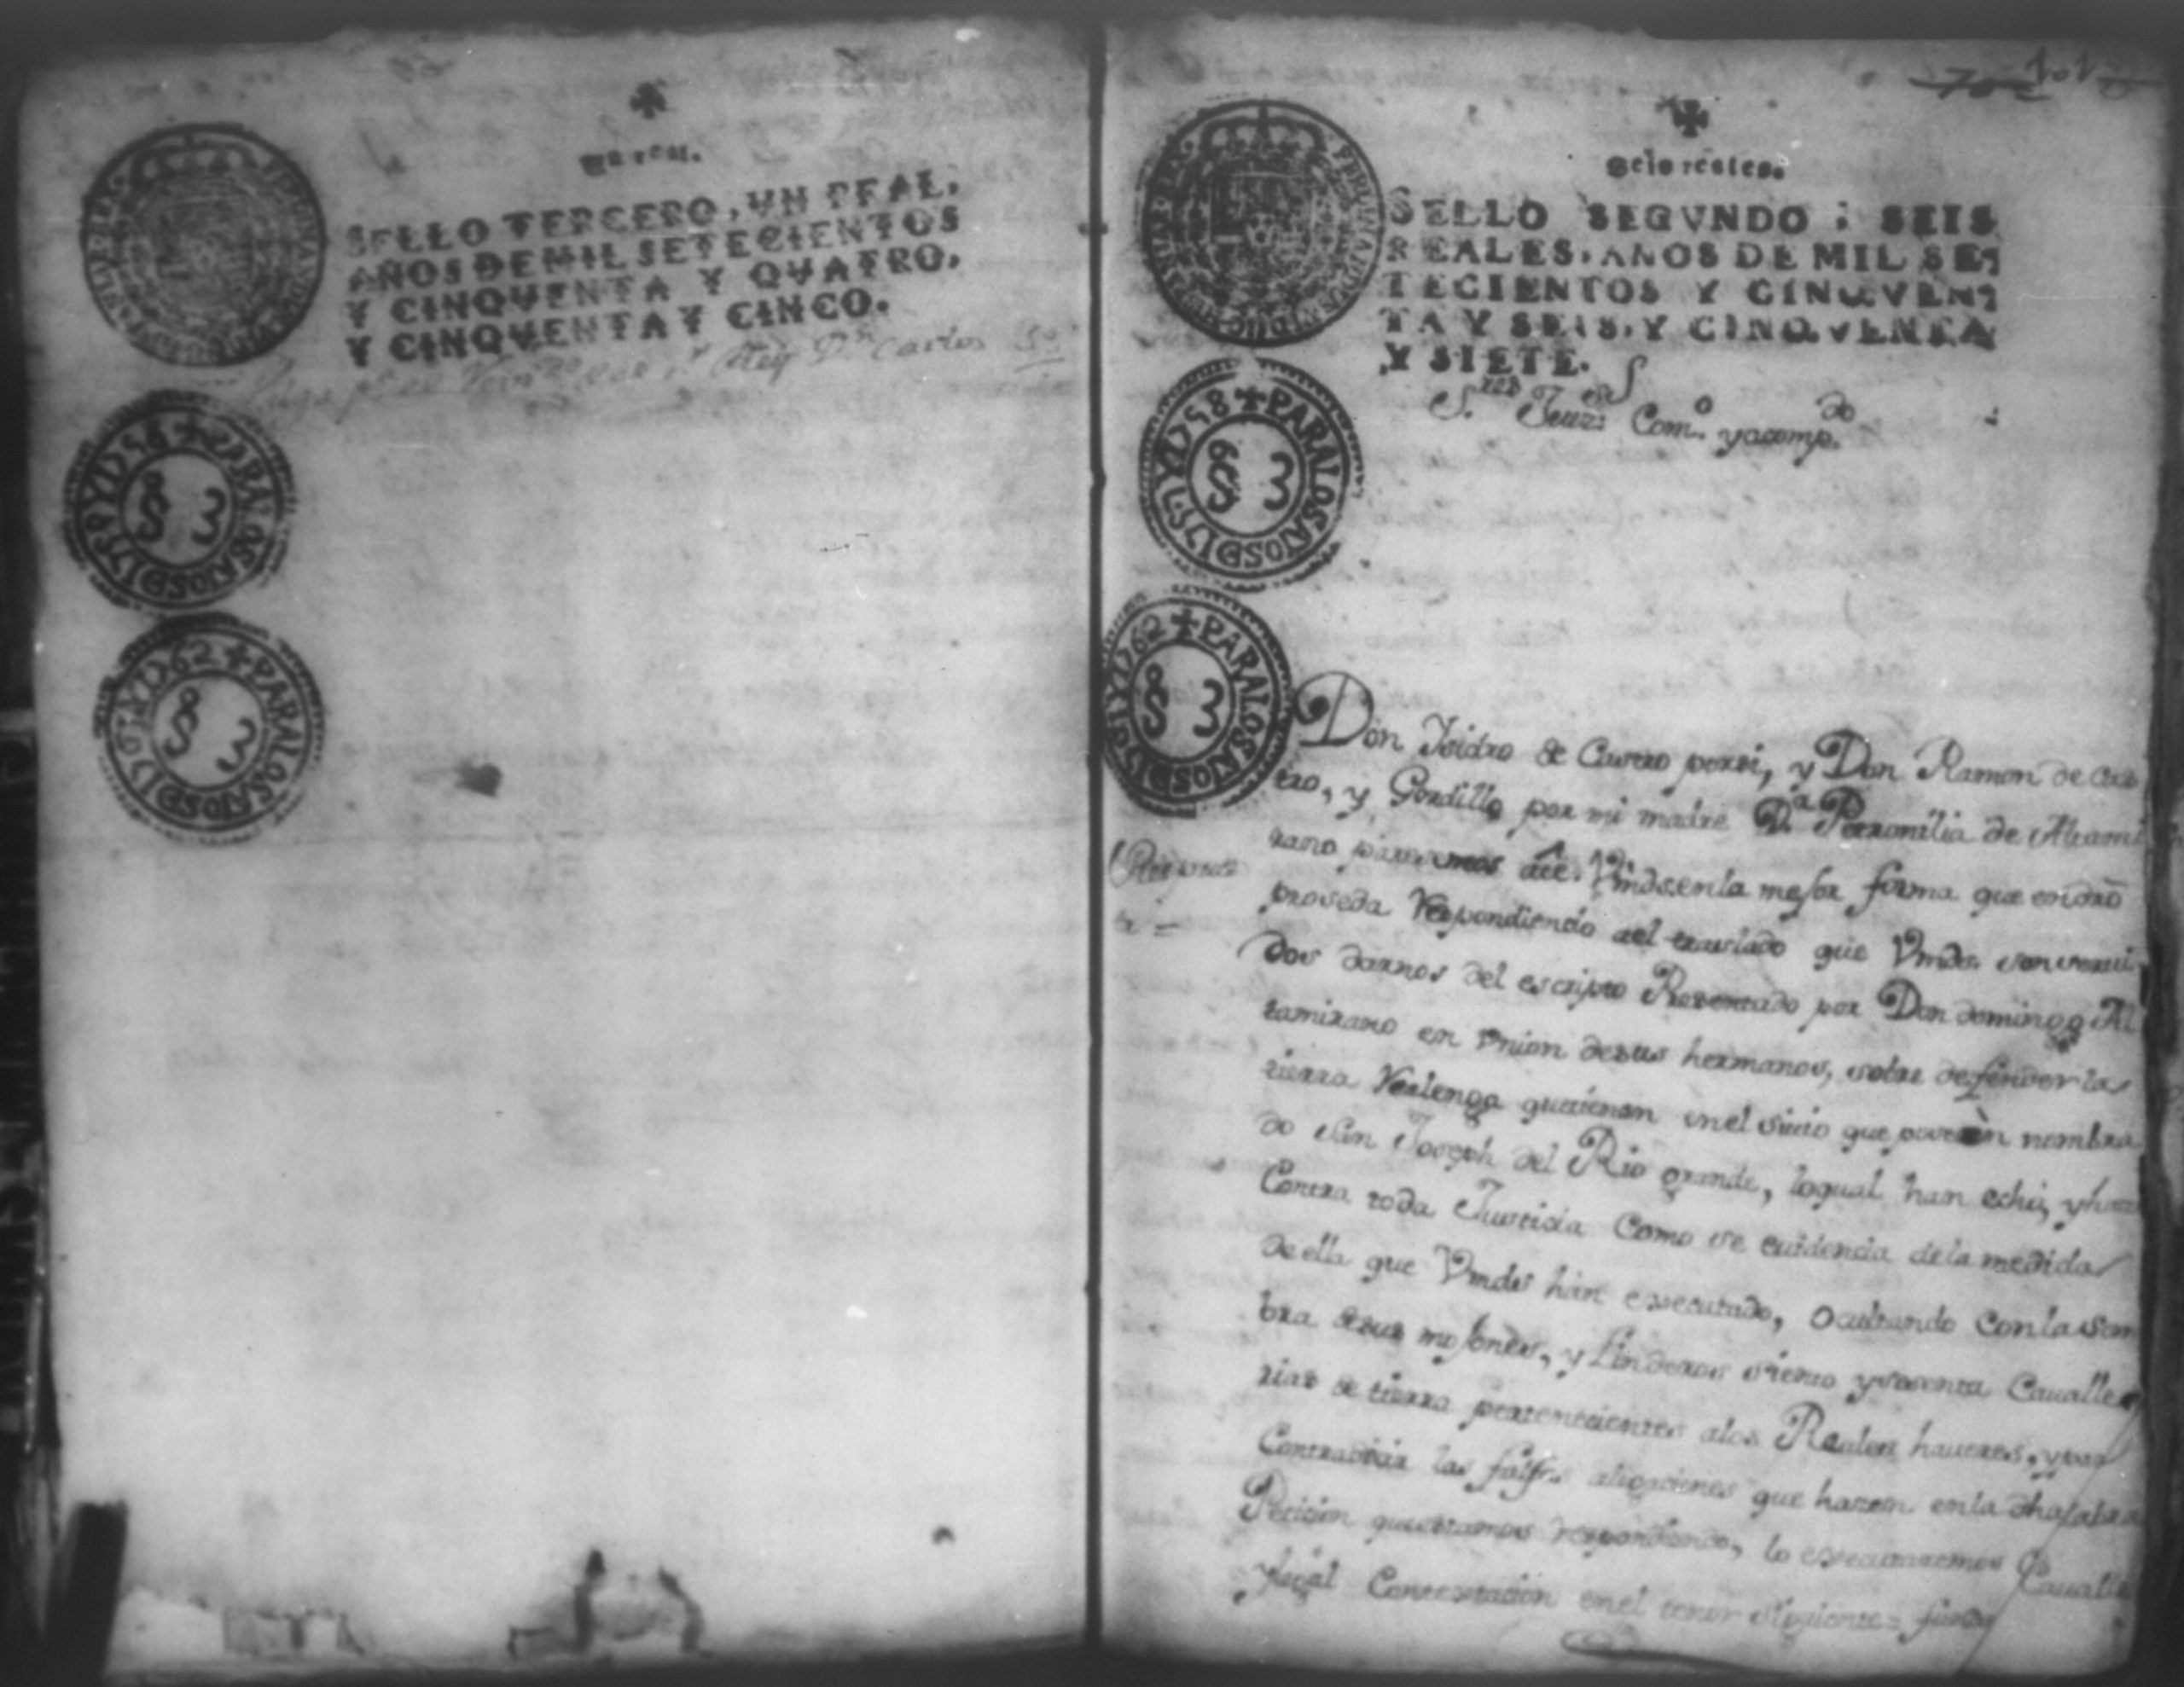 Un real.
SELLO TERCERO, UN REAL,
AÑOS DE MIL SETECIENTOS
Y CINQVENTA Y QVATRO,
Y CINQVENTA Y CINCO.
Rey Dn Carlos 3o
PARA LOS AÑOS DE 1757 Y 1758
PARA LOS AÑOS DE 1761 Y 1762
101
Seis reales.
SELLO SEGVNDO; SEIS
REALES, AÑOS DE MIL SE-
TECIENTOS Y CINQVEN-
TA Y SEIS, Y CINQVENTA
Y SIETE.
S.res Juez Com.o y acomp.do
PARA LOS AÑOS DE 1757 Y 1758
PARA LOS AÑOS DE 1761 Y 1762
Don Isidro de Castro por si, y Don Ramon de Cas
tro, y Gordillo por mi madre D.a Petronilia de Altami
rano parecemos Vmds. en la mejor forma que en dro
proseda Respondiendo ael traslado que Vmds. son servi
dos darnos del escripto Presentado por Don Domingo Al
tamirano en union de sus hermanos, sobre defender la
tierra Realenga que tienen en el sitio que poseen nombra
do San Joseph del Rio grande, lo qual han echo, y hazen
Contra toda Justicia Como se evidencia de la medida
de ella que Vmds han executado, ocultando con la som
bra de sus mojones, y Linderos siento y sesenta Cavalle
rias de tierra pertenecientes a los Reales haveres, y para
Contradecir las falsas alegaciones que hazen en la
Peticion que estamos respondiendo, lo executaremos
y legal Contestacion en el tenor siguiente=